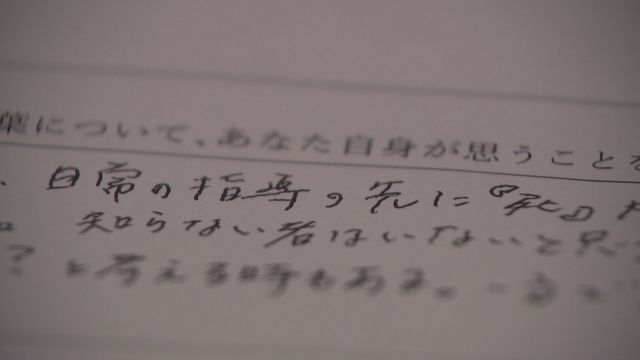 葉について、あなた自身が思うことを
日常の指導の先に『死』が
知らない者はいないと思
？と考える時もある。一方で